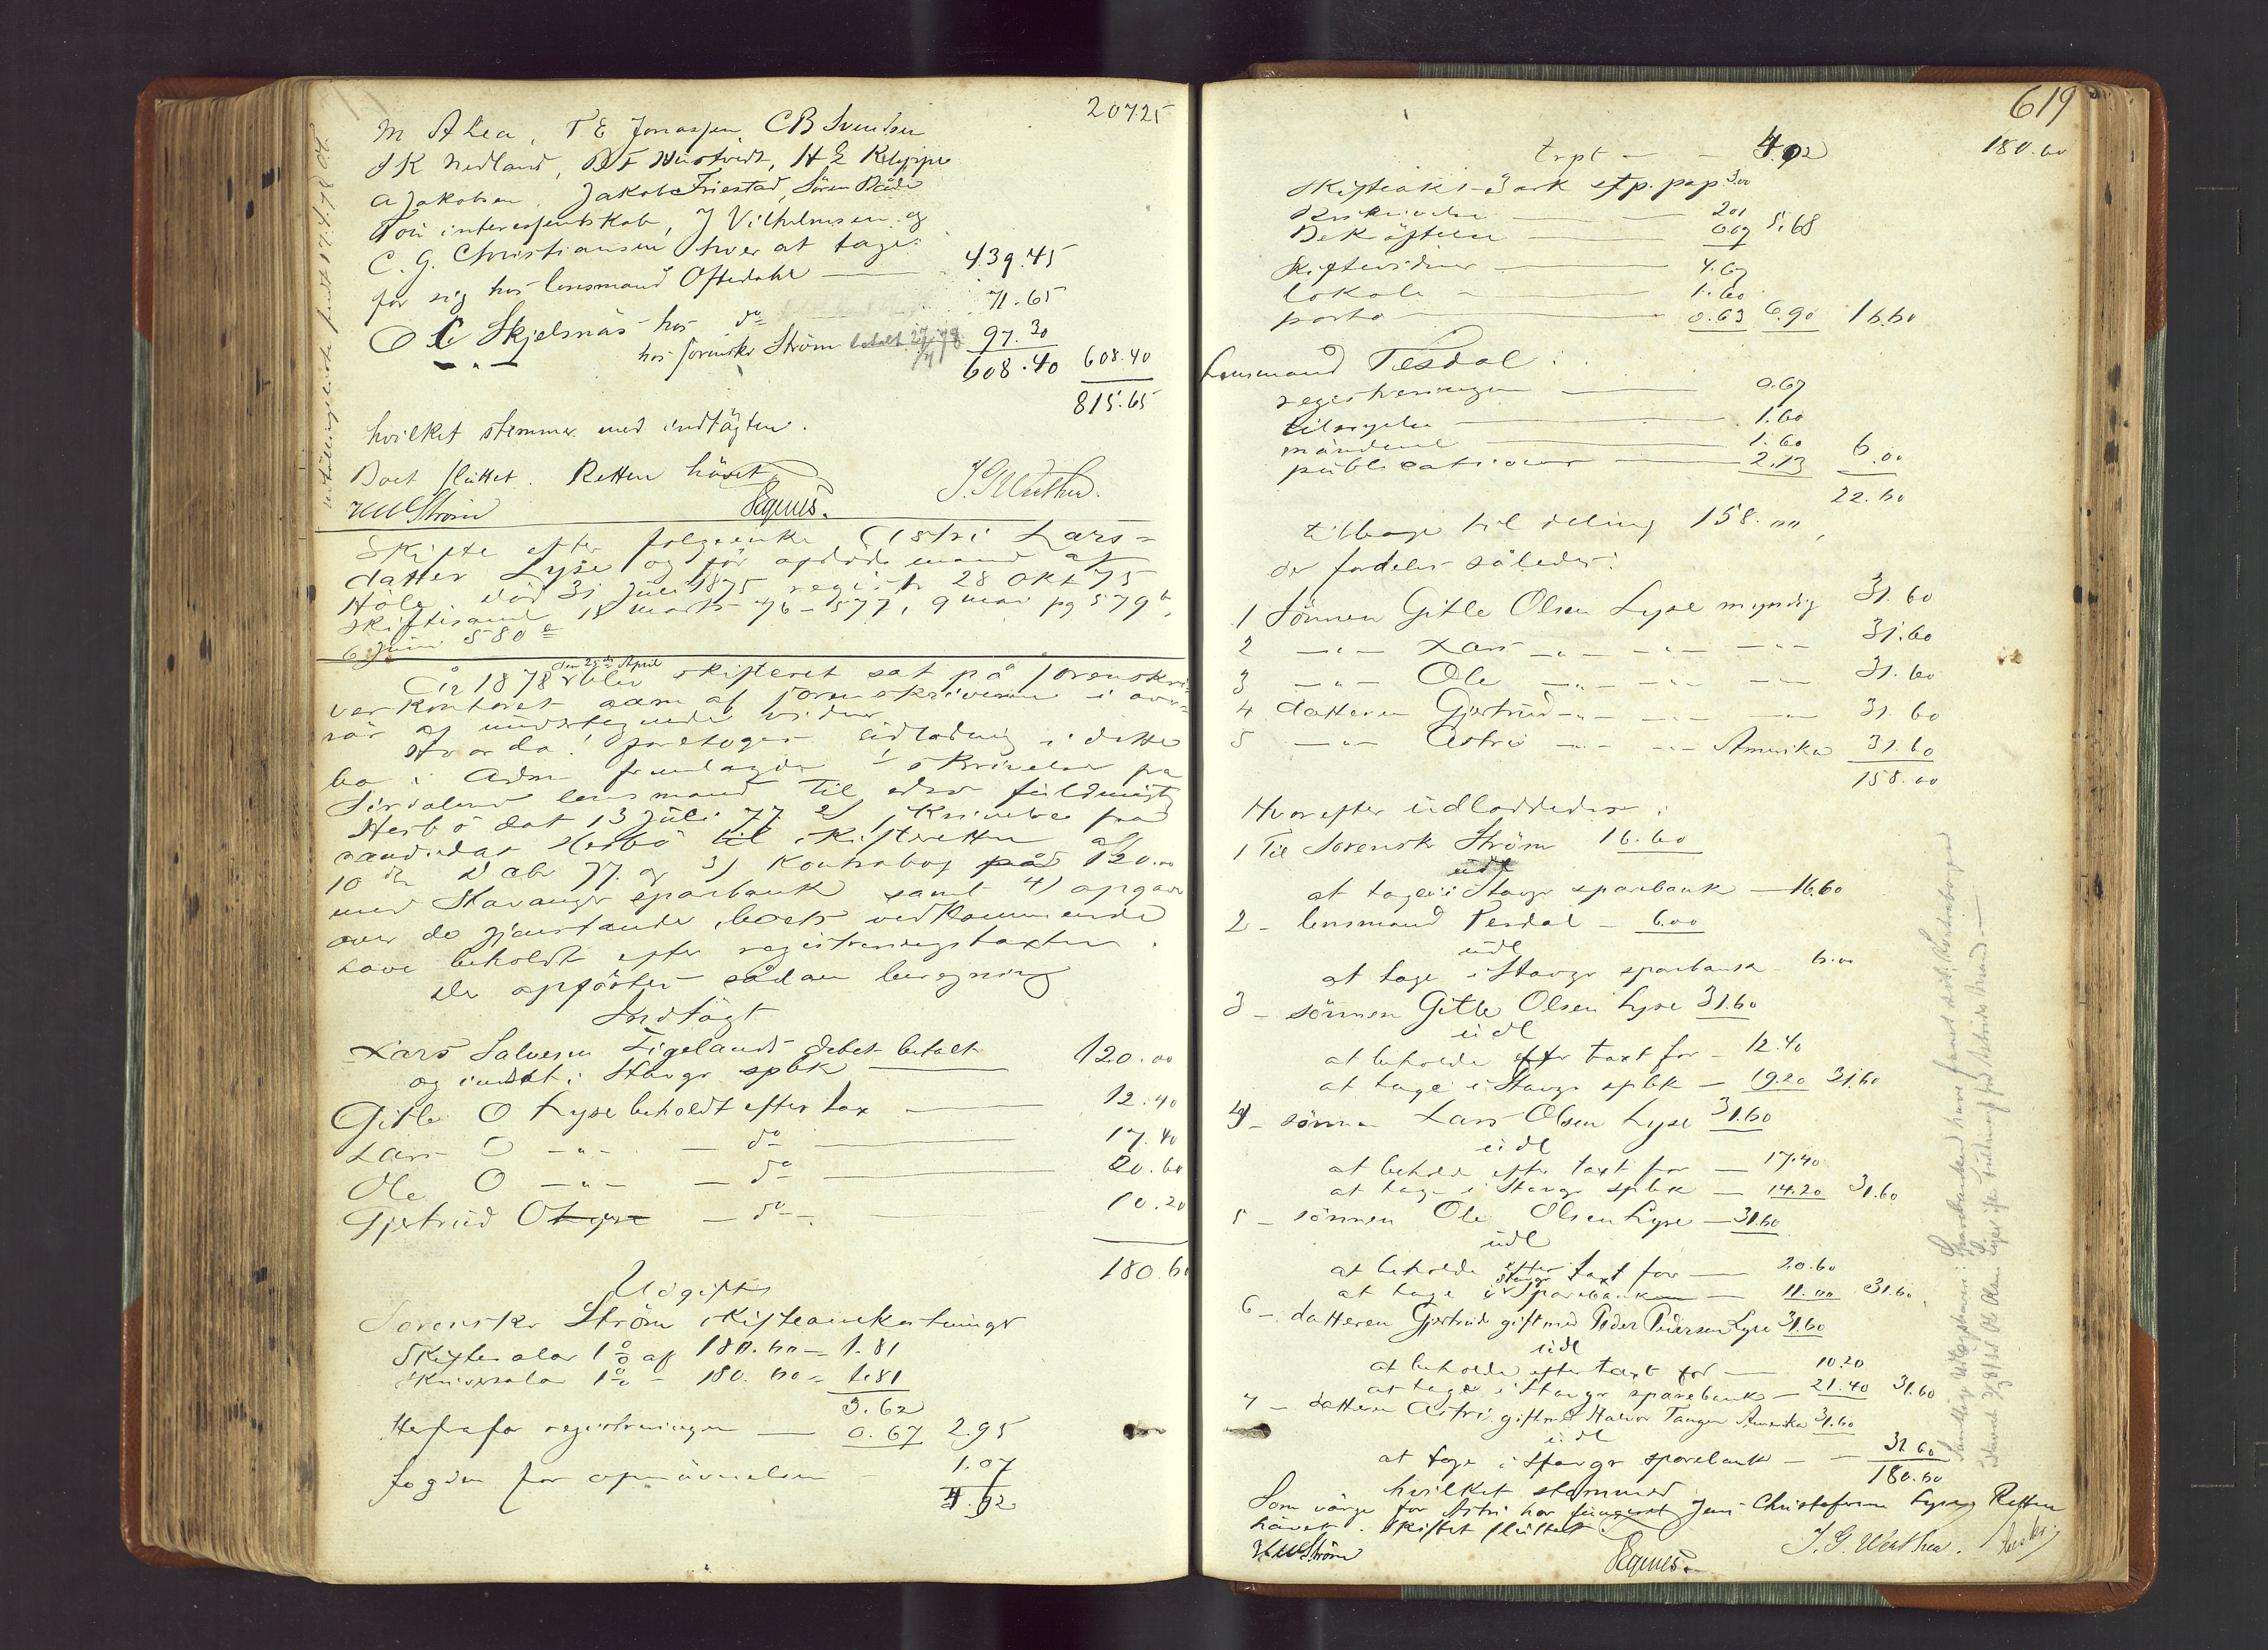 207.25
M Alea, T E Jonassen, CB Svendsen
S K Nedland, B T Hustvedt, H E Kleppe
A Jakobsen, Jakob Friestad, Sören
Tou interessentskab, J Vilhelmsen og
C. G. Christiansen hver at tage
for sig hos lensmand Oftedahl — 439.45
O C Skjelsnäs hos do 71.65
— " — hos sorenskr Ström betalt 97.30
608.40 608.40
815.65
hvilket stemmer med indtägten.
Boet sluttet. Retten hävet
Ström Seqnes. J. G. Werthea.
Skifte efter folgeenke Astri Lars=
datter Lyse og för afdöde mand af
Höle död 31 Juli 1875 registr 28 Okt 75
skiftesaml 18 marts 76 - 577, 9 mai pg 579 b,
6 Juni 580 a
År 1878 den 25de April blev skifteret sat på sorenskri-
verkontoret adm af sorenskriveren i over-
vär af undertegnede vidner
Hvorda! foretoges udlodning i dette
bo i Adm fremlagde 1 skrivelse fra
Sirdalens lensmand til edsv fuldmägt
Hesbö dat 13 Juli 77 2) skrivelse fra
kandidat Hesbö til skifteretten af
10 de Dcbr 77. og 3) kontrabog på 120.00
med Stavanger sparbank samt 4) opgave
over de gjenstande, boets vedkommende
have beholdt efter registreringstaxten.
Der opförtes sådan beregning
Indtägt
Lars Salvesen Tigelands debet betalt
og indsat i Stavgr spbk — 120.00
Gitle O Lyse beholdt efter tax — 12.40
Lars O — " — — do — 17.40
Ole O — " — — do — 20.60
Gjertrud O Lyse — do — 10.20
180.60
Udgift
Sorenskr Ström skifteomkostninger
Skiftesalar 1 % af 180.60 = 1.81
skriversalar 1 % - 180.60 = 1.81
3.62
Herfra for registreringen — 0.67 2.95
fogden for opnävnelsen - 1.07
4.02
619
trpt — — 4.02 180.60
Skifteakt 3 ark stp. pap 3.00
Beskrivelse — 2.01
Bekräftelse — 0.67 5.68
Skiftevidner — 4.67
lokale — 1.60
porto — 0.63 6.90 16.60
Lensmand Tesdal:
registreringen — 0.67
tilsigelse — 1.60
mändene — 1.60
publikationer — 2.13 6.00
22.60
tilbage til deling 158.00,
der fordeles således:
1 Sönnen Gitle Olsen Lyse myndig 31.60
2 — " — Lars — " — — " — — " — 31.60
3 — " — Ole — " — — " — — " — 31.60
4 datteren Gjertrud — " — — " — — " — 31.60
5 — " — Astri — " — — " — Amerika 31.60
158.00
Hvorefter udloddedes:
1 Til Sorenskr Ström 16.60
udl
at tage i Stavgr sparbank — 16.60
2 - lensmand Tesdal — 6.00
udl
at tage i Stavgr sparbank — 6.00
3 - sönnen Gitle Olsen Lyse 31.60
udl
at beholde efter taxt for — 12.40
at tage i Stavgr spbk — 19.20 31.60
4 - sönnen Lars Olsen Lyse 31.60
udl
at beholde efter taxt for — 17.40
at tage i Stavgr spbk — 14.20 31.60
5 - sönnen Ole Olsen Lyse — 31.60
udl
at beholde efter taxt for — 20.60
at tage i Stavgr sparebanken — 11.00 31.60.
6 - datteren Gjertrud gift med Peder Pedersen Lyse 31.60
udl
at beholde efter taxt for — 10.20
at tage i Stavgr sparebank — 21.40 31.60
7 - datteren Astri gift med Halvor Tangen Amerika 31.60
udl
at tage i Stavgr sparebank — — 31.60
180.60
hvilket stemmed
Som värge for Astri har fungeret Jens Christofersen Lyse, Retten
hävet. Skiftet sluttet.
Ström Seqnes. J. G. Werthea.